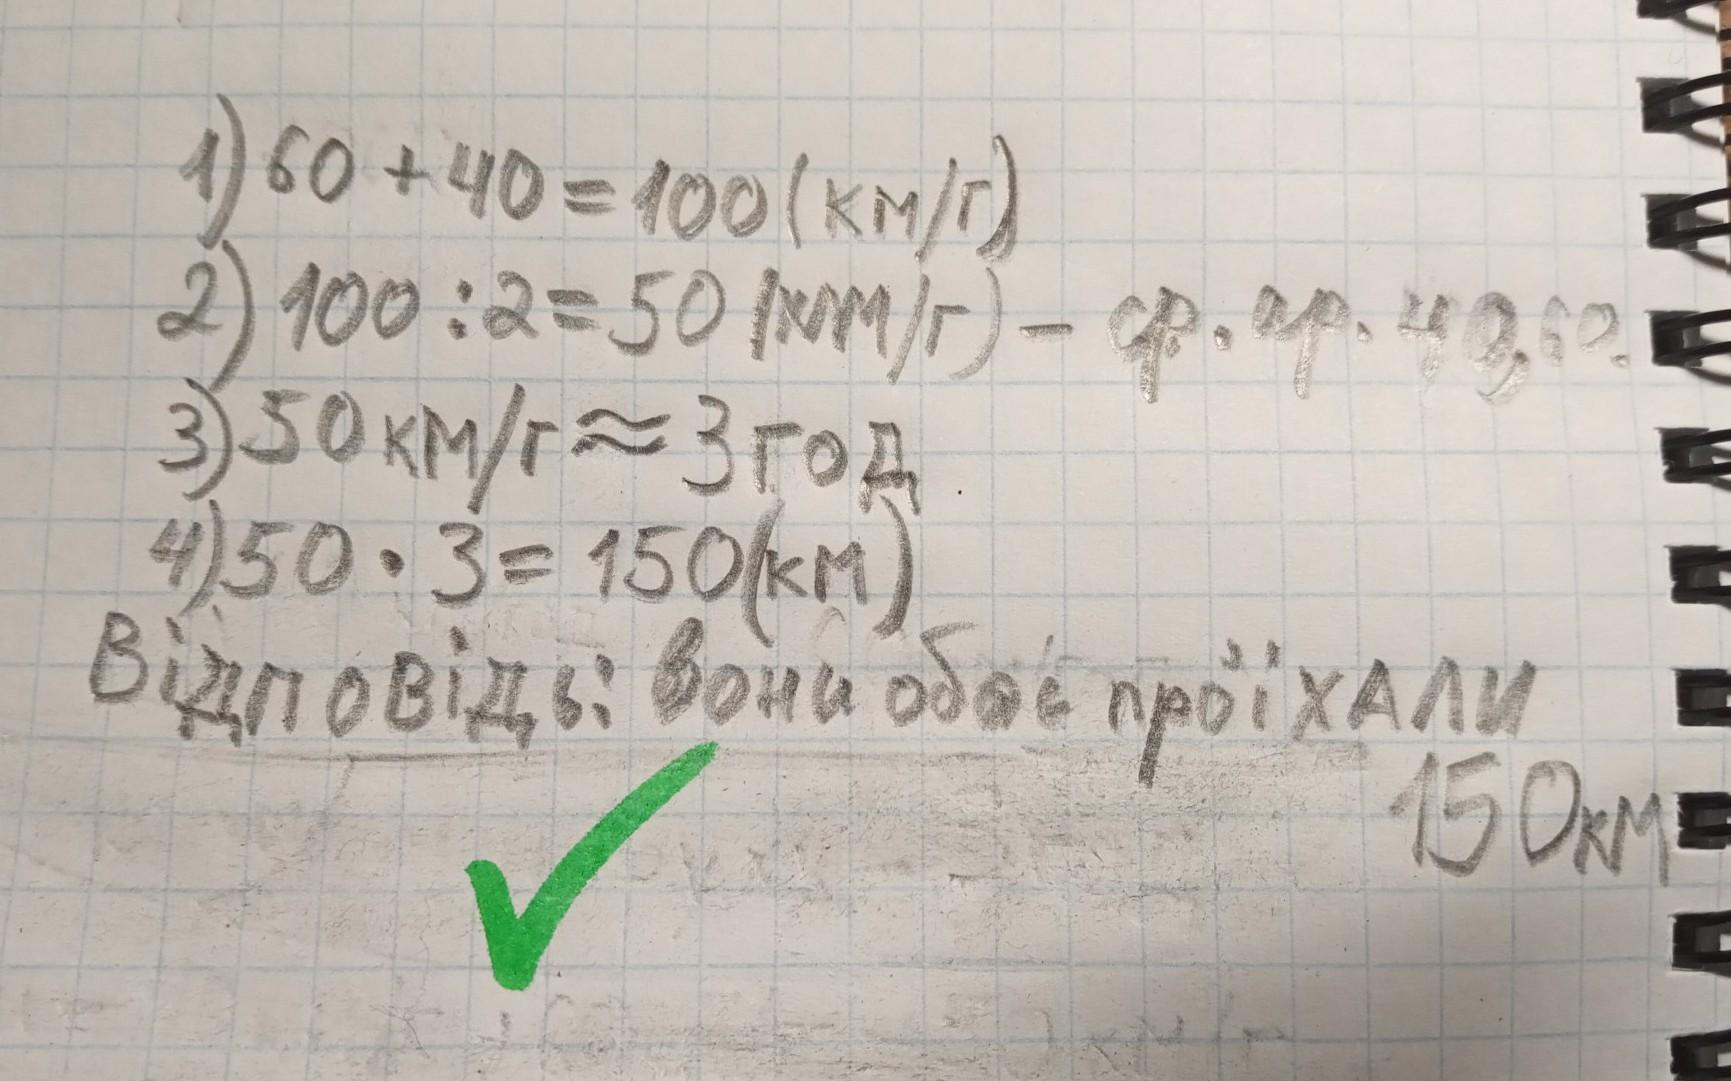 1) 60 + 40 = 100 (км/г)
2) 100 : 2 = 50 (км/г) - ср. ар. 40, 60.
3) 50 км/г ≈ 3 год
4) 50 · 3 = 150 (км)
Відповідь: вони обоє проїхали
150 км